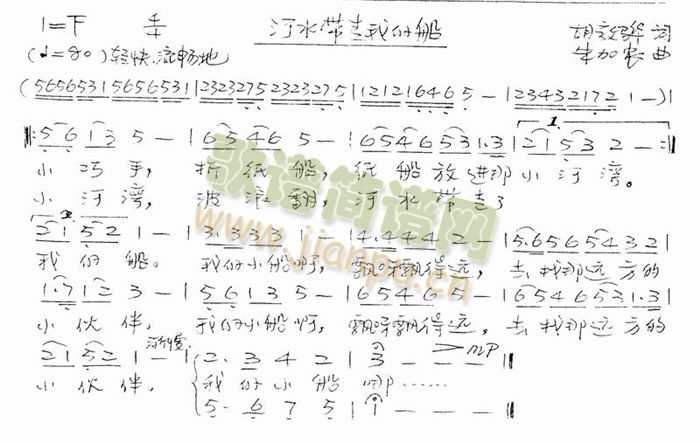 1=F 4/4 河水带走我的船 胡敦骅 词
(♩=80) 轻快.流畅地 朱加农 曲
(56565315 6565 31|23232752 32 32 75|12121646 5 - |23432172 1 -)|
𝄆5 6 1 3 5 - |6 5 4 6 5 - |6 5 4 6 5 3 1.3|2 1 5 3 2 - :‖
小 巧 手, 折 纸 船, 纸 船 放 进 那 小 河 湾。
小 河 湾, 波 浪 翻, 河 水 带 走了
2 1 5 2 1 - |3.3 3 3 1 - |4.4 4 4 2 - |5.6 5 6 5 4 3 2|
我 的 船。 我的小船啊, 飘呀飘得远, 去找那远方的
1.7 1 2 3 - |5 6 1 3 5 - |6 5 4 6 5 - |6 5 4 6 5 3 1.3|
小 伙 伴, 我的小船啊, 飘呀飘得远, 去找那远方的
2 1 5 2 1 - 渐慢 |2. 3 4 2 |3 - - - mp‖
小 伙 伴, 我 的 小 船 啊……
5. 6 7 5 |1 - - - ‖
歌谱简谱网
www.jianpu.cn